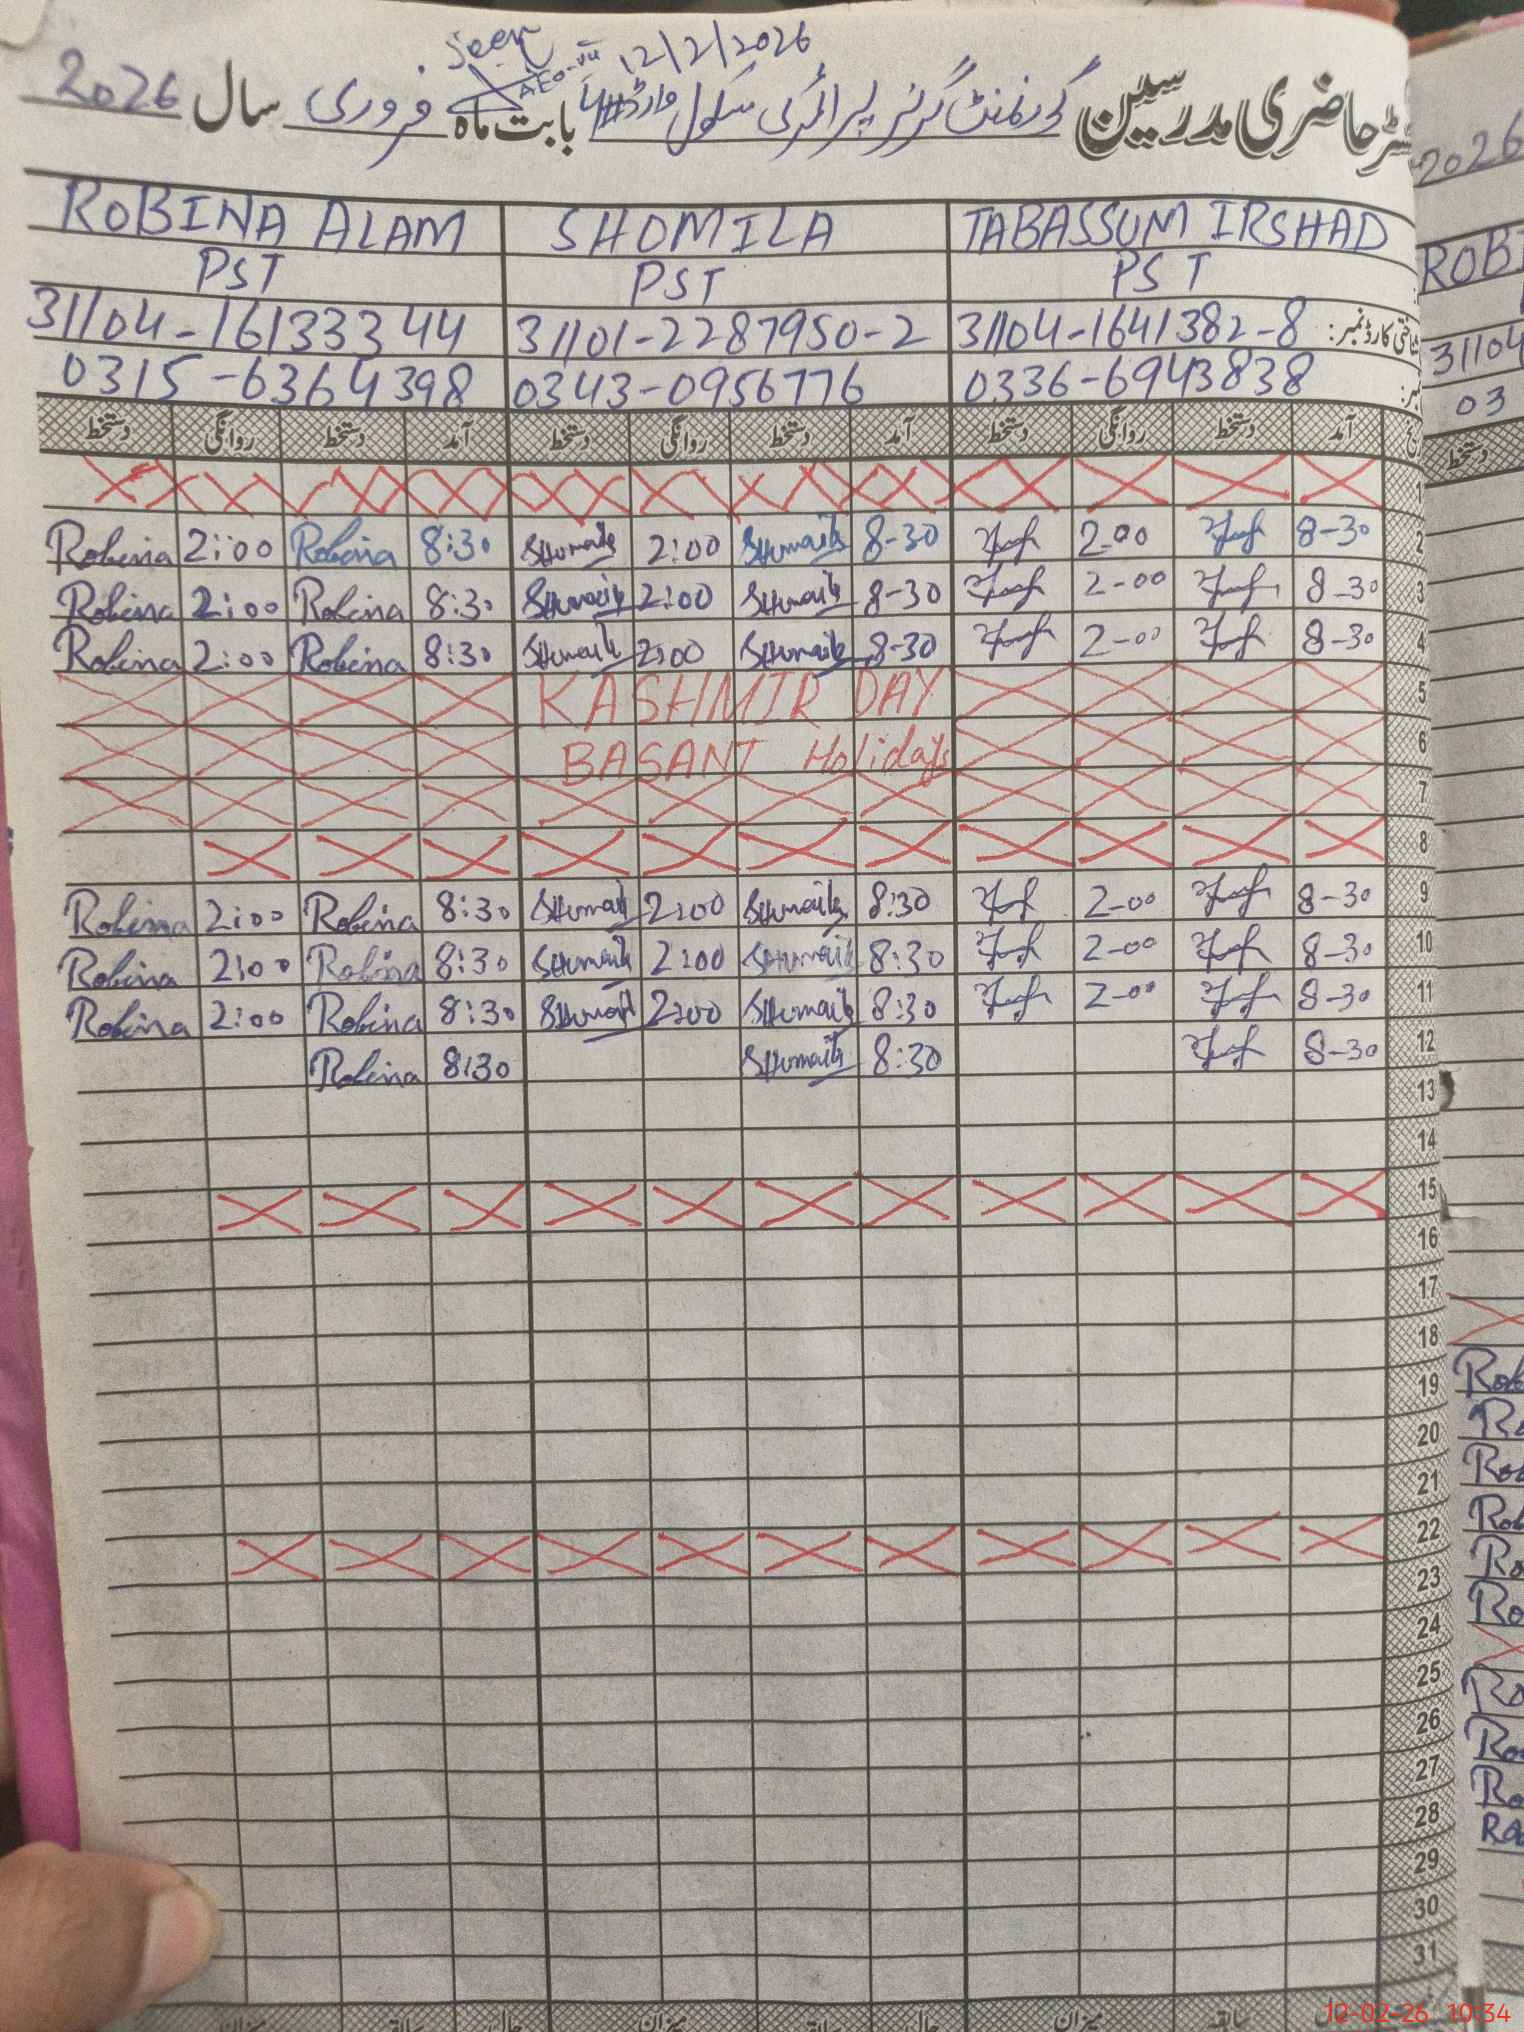 seen
AEO-VII 12/2/2026
رجسٹر حاضری مدرسین گورنمنٹ گرلز پرائمری سکول وارڈ#4 بابت ماہ فروری سال 2026
ROBINA ALAM SHOMILA TABASSUM IRSHAD
PST PST PST
31104-1613334 4 31101-2287950-2 31104-1641382-8 شناختی کارڈ نمبر:
0315-6364398 0343-0956776 0336-6943838
دستخط روانگی دستخط آمد دستخط روانگی دستخط آمد دستخط روانگی دستخط آمد
1
Robina 2:00 Robina 8:30 Shumaila 2:00 Shumaila 8-30 2-00 8-30 2
Robina 2:00 Robina 8:30 Shumaila 2:00 Shumaila 8-30 2-00 8-30 3
Robina 2:00 Robina 8:30 Shumaila 2:00 Shumaila 8-30 2-00 8-30 4
KASHMIR DAY 5
BASANT Holidays 6
7
8
Robina 2:00 Robina 8:30 Shumaila 2:00 Shumaila 8:30 2-00 8-30 9
Robina 2:00 Robina 8:30 Shumaila 2:00 Shumaila 8:30 2-00 8-30 10
Robina 2:00 Robina 8:30 Shumaila 2:00 Shumaila 8:30 2-00 8-30 11
Robina 8:30 Shumaila 8:30 8-30 12
13
14
15
16
17
18
19
20
21
22
23
24
25
26
27
28
29
30
31
میزان سابقہ حال میزان سابقہ حال میزان سابقہ
2026
ROBI
31104
03
دستخط
12-02-26 10:34